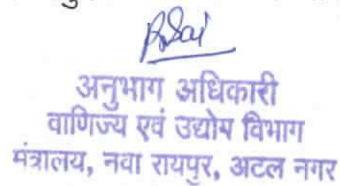 अनुभाग अधिकारी
वाणिज्य एवं उद्योग विभाग
मंत्रालय, नवा रायपुर, अटल नगर